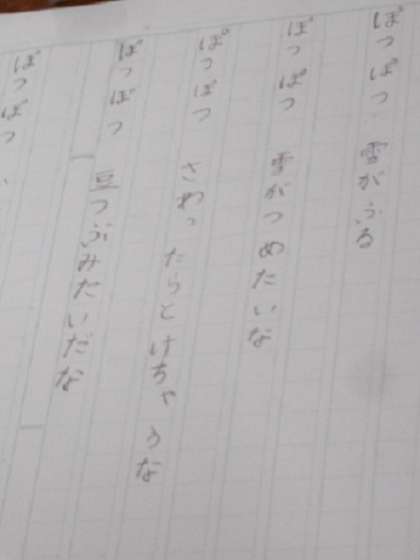 ぽつ ぽつ 雪がふる
ぽつ ぽつ 雪がつめたいな
ぽつ ぽつ さわったらとけちゃうな
ぽつ ぽつ 豆つぶみたいだな
ぽつ ぽつ